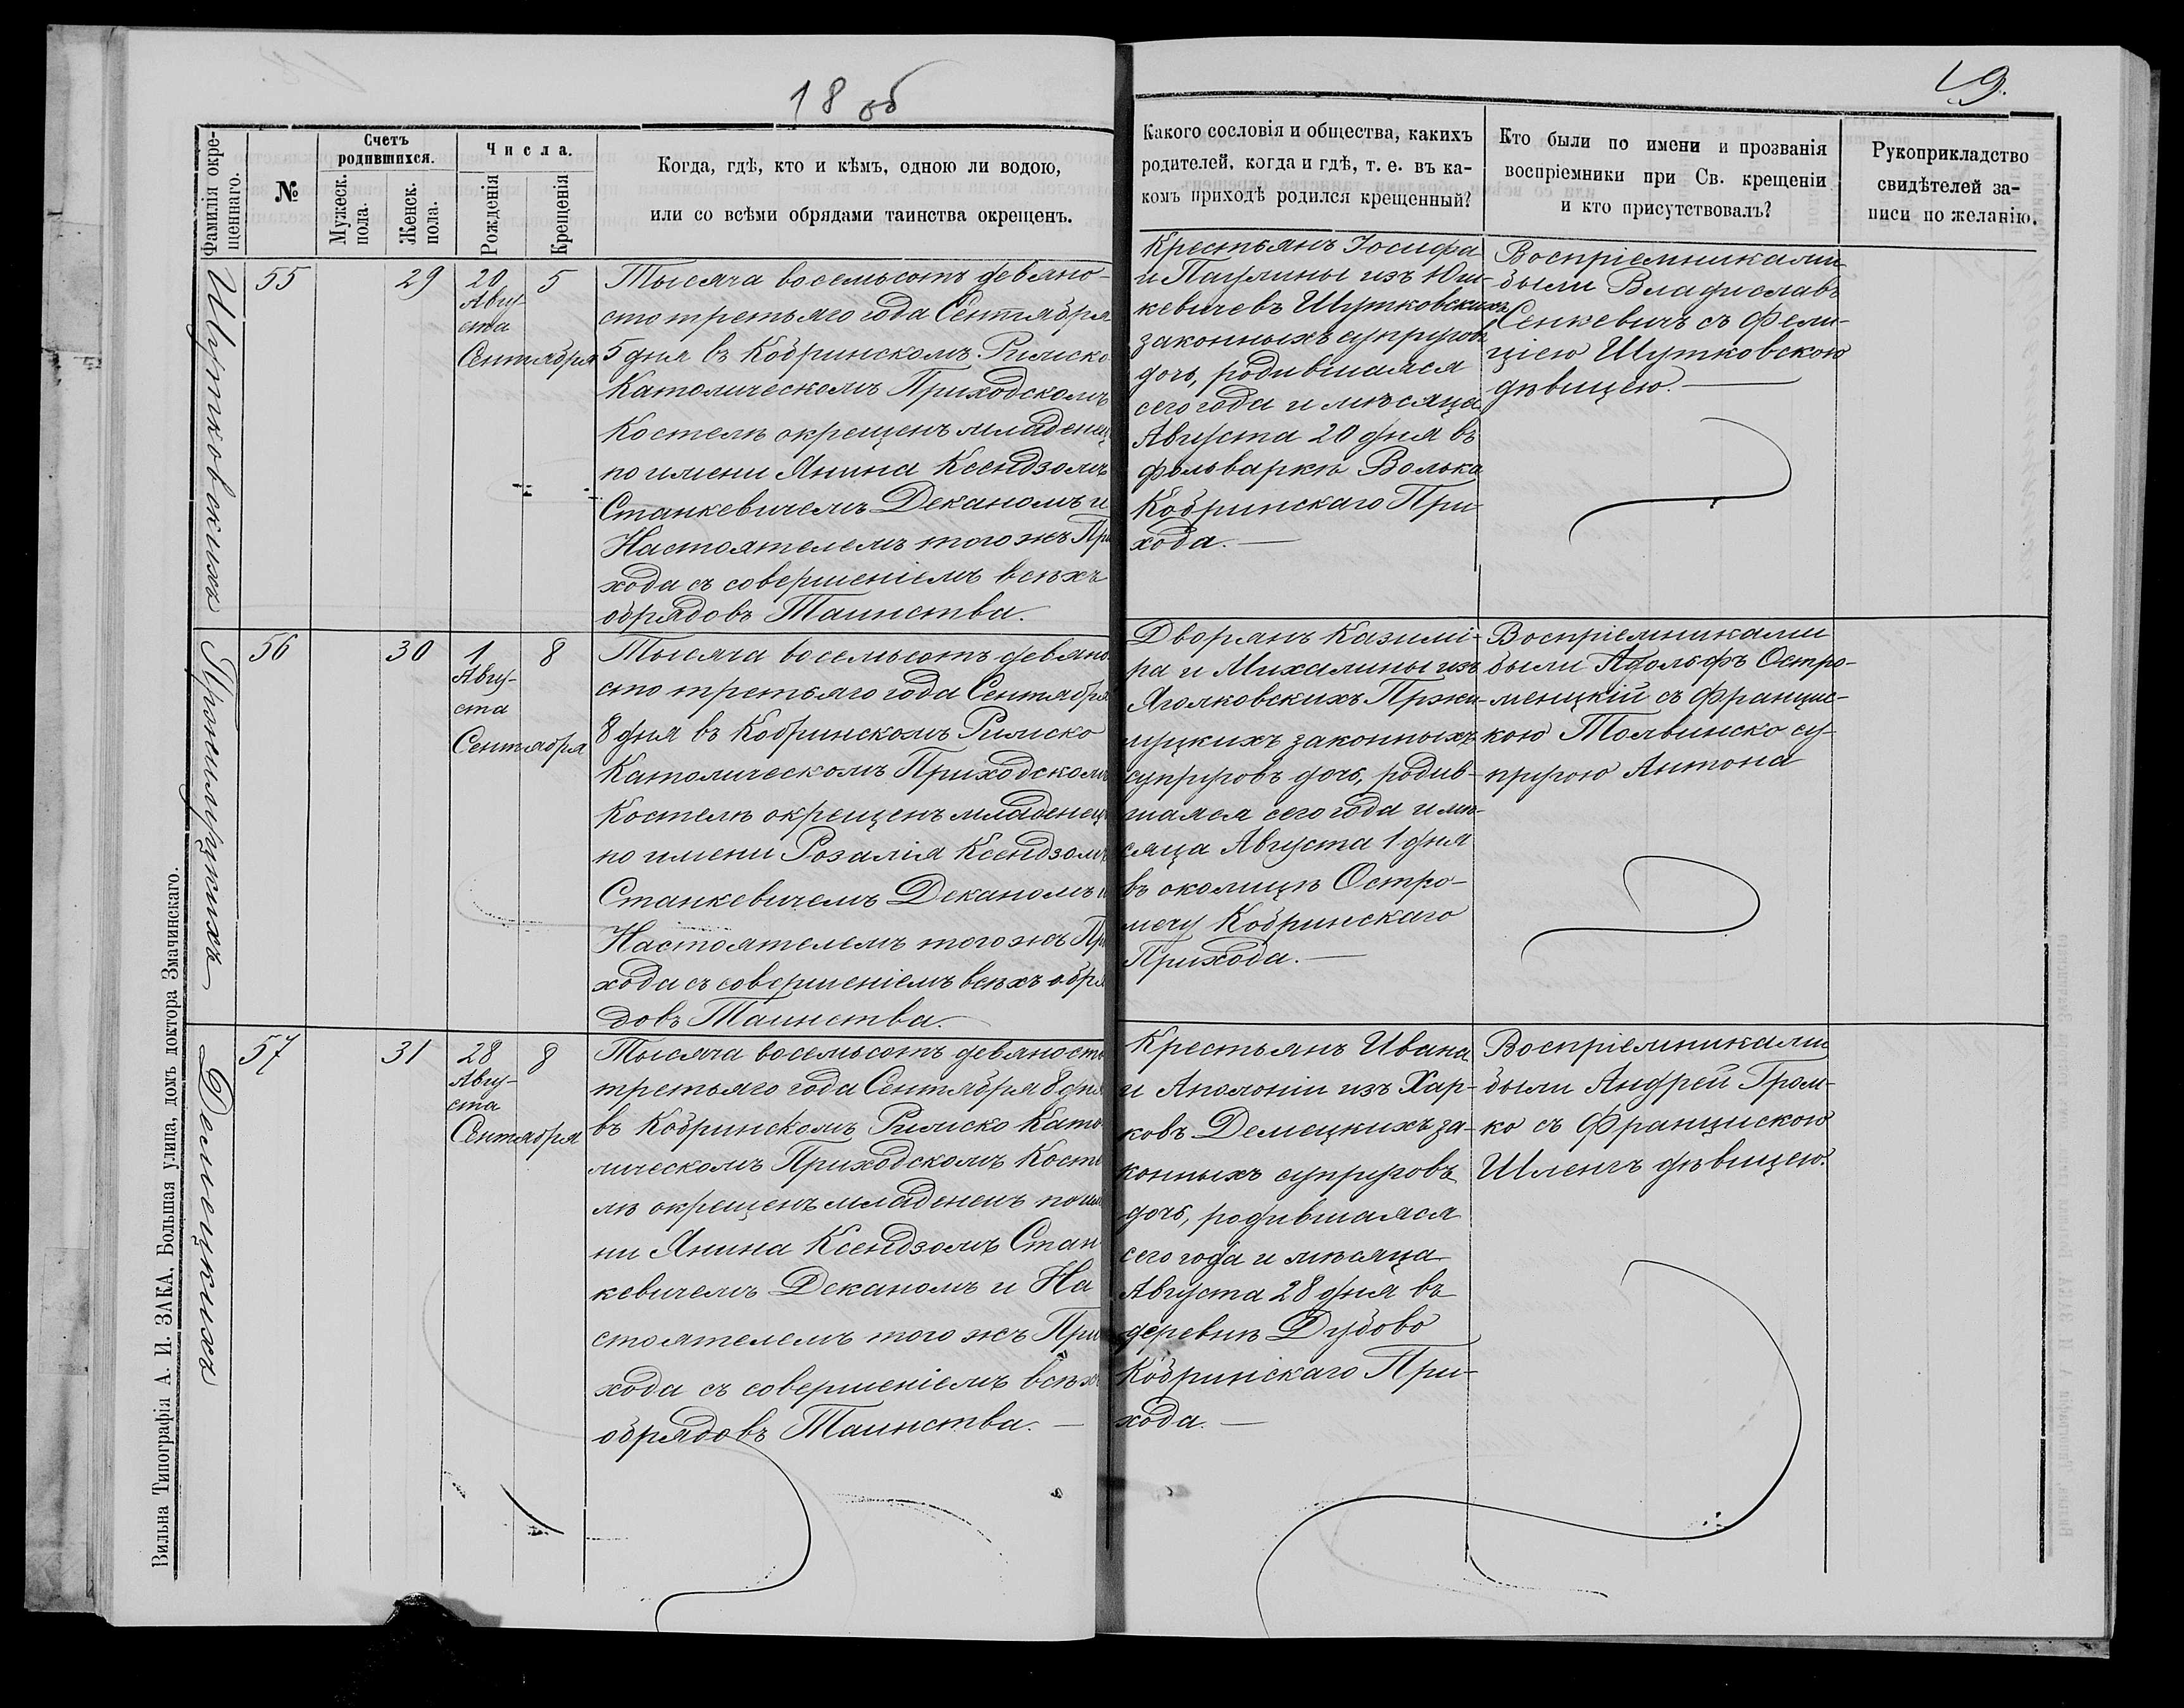 18 об
19.
Фамилія окре-
щеннаго.
№
Счетъ
родившихся.
Мужеск.
пола.
Женск.
пола.
Числа.
Рожденія
Крещенія
Когда, гдѣ, кто и кѣмъ, одною ли водою,
или со всѣми обрядами таинства окрещенъ.
Какого сословія и общества, какихъ
родителей, когда и гдѣ, т. е. въ ка-
комъ приходѣ родился крещенный?
Кто были по имени и прозванія
воспріемники при Св. крещеніи
и кто присутствовалъ?
Рукоприкладство
свидѣтелей за-
писи по желанію.
Шутковскихъ
55
29
20
Авгу-
ста
5
Сентября
Тысяча восемьсотъ девяно-
сто третьяго года Сентября
5 дня въ Кобринскомъ Римско
Католическомъ Приходскомъ
Костелѣ окрещенъ младенец
по имени Янина Ксендзомъ
Станкевичемъ Деканомъ и
Настоятелемъ того жъ При
хода съ совершеніемъ всѣхъ
обрядовъ Таинства.
Крестьянъ Іосифа
и Паулины изъ Юш-
кевичевъ Шутковскихъ
законныхъ супруговъ
дочь, родившаяся
сего года и мѣсяца
Августа 20 дня въ
фольваркѣ Волька
Кобринскаго При-
хода.
Воспріемниками
были Владиславъ
Сенкевичъ съ Фели-
ціею Шутковскою
дѣвицею.
Пржилуцкихъ
56
30
1
Авгу-
ста
8
Сентября
Тысяча восемьсотъ девяно-
сто третьяго года Сентября
8 дня въ Кобринскомъ Римско
Католическомъ Приходскомъ
Костелѣ окрещенъ младенец
по имени Розалія Ксендзомъ
Станкевичемъ Деканомъ и
Настоятелемъ того жъ При
хода съ совершеніемъ всѣхъ обря
довъ Таинства.
Дворянъ Казимі-
ра и Михалины изъ
Яголковскихъ Пржи-
луцкихъ законныхъ
супруговъ дочь, родив-
шаяся сего года и мѣ-
сяца Августа 1 дня
въ околицѣ Остро-
мечу Кобринскаго
Прихода.
Воспріемниками
были Адольфъ Остро-
менцкій съ Францис-
кою Толвинско су-
пругою Антона
Демецкихъ
57
31
28
Авгу-
ста
8
Сентября
Тысяча восемьсотъ девяносто
третьяго года Сентября 8 дня
въ Кобринскомъ Римско Като
лическомъ Приходскомъ Косте
лѣ окрещенъ младенецъ по име
ни Янина Ксендзомъ Стан
кевичемъ Деканомъ и На
стоятелемъ того жъ При
хода съ совершеніемъ всѣхъ
обрядовъ Таинства.
Крестьянъ Ивана
и Аполоніи изъ Хар-
ковъ Демецкихъ за-
конныхъ супруговъ
дочь, родившаяся
сего года и мѣсяца
Августа 28 дня въ
деревнѣ Дубово
Кобринскаго При-
хода.
Воспріемниками
были Андрей Гром-
ко съ Францискою
Шленгъ дѣвицею.
Вильна Типографія А. И. ЗАКА, Большая улица, домъ доктора Змачинскаго.